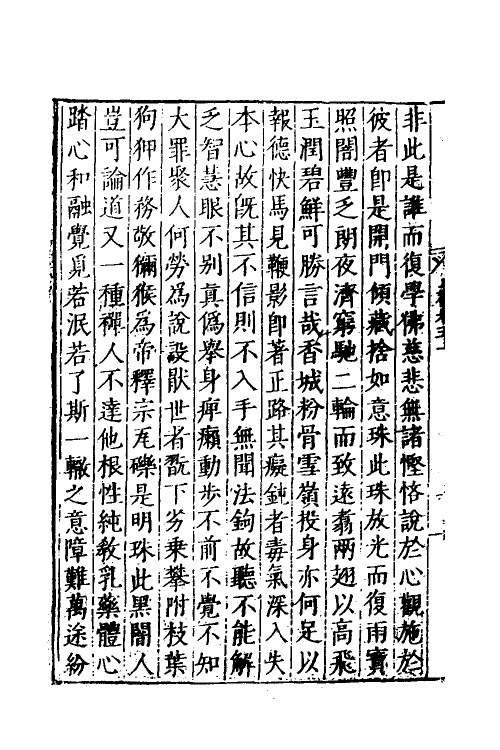 非此是誰而復學佛慈悲無諸慳悋說於心觀施於
彼者即是開門傾藏捨如意珠此珠放光而復雨寶
照闇豐乏朗夜濟窮馳二輪而致遠翥兩翅以高飛
玉潤碧鮮可勝言哉香城粉骨雪嶺投身亦何足以
報德快馬見鞭影即著正路其癡鈍者毒氣深入失
本心故旣其不信則不入手無聞法鉤故聽不能解
乏智慧眼不别真偽舉身痺癩動步不前不覺不知
大罪聚人何勞為說設猒世者翫下劣乗攀附枝葉
狗狎作務敬獼猴為帝釋宗瓦礫是明珠此黑闇人
豈可論道又一種禪人不達他根性純敎乳藥體心
踏心和融覺覓若泯若了斯一轍之意障難萬途紛